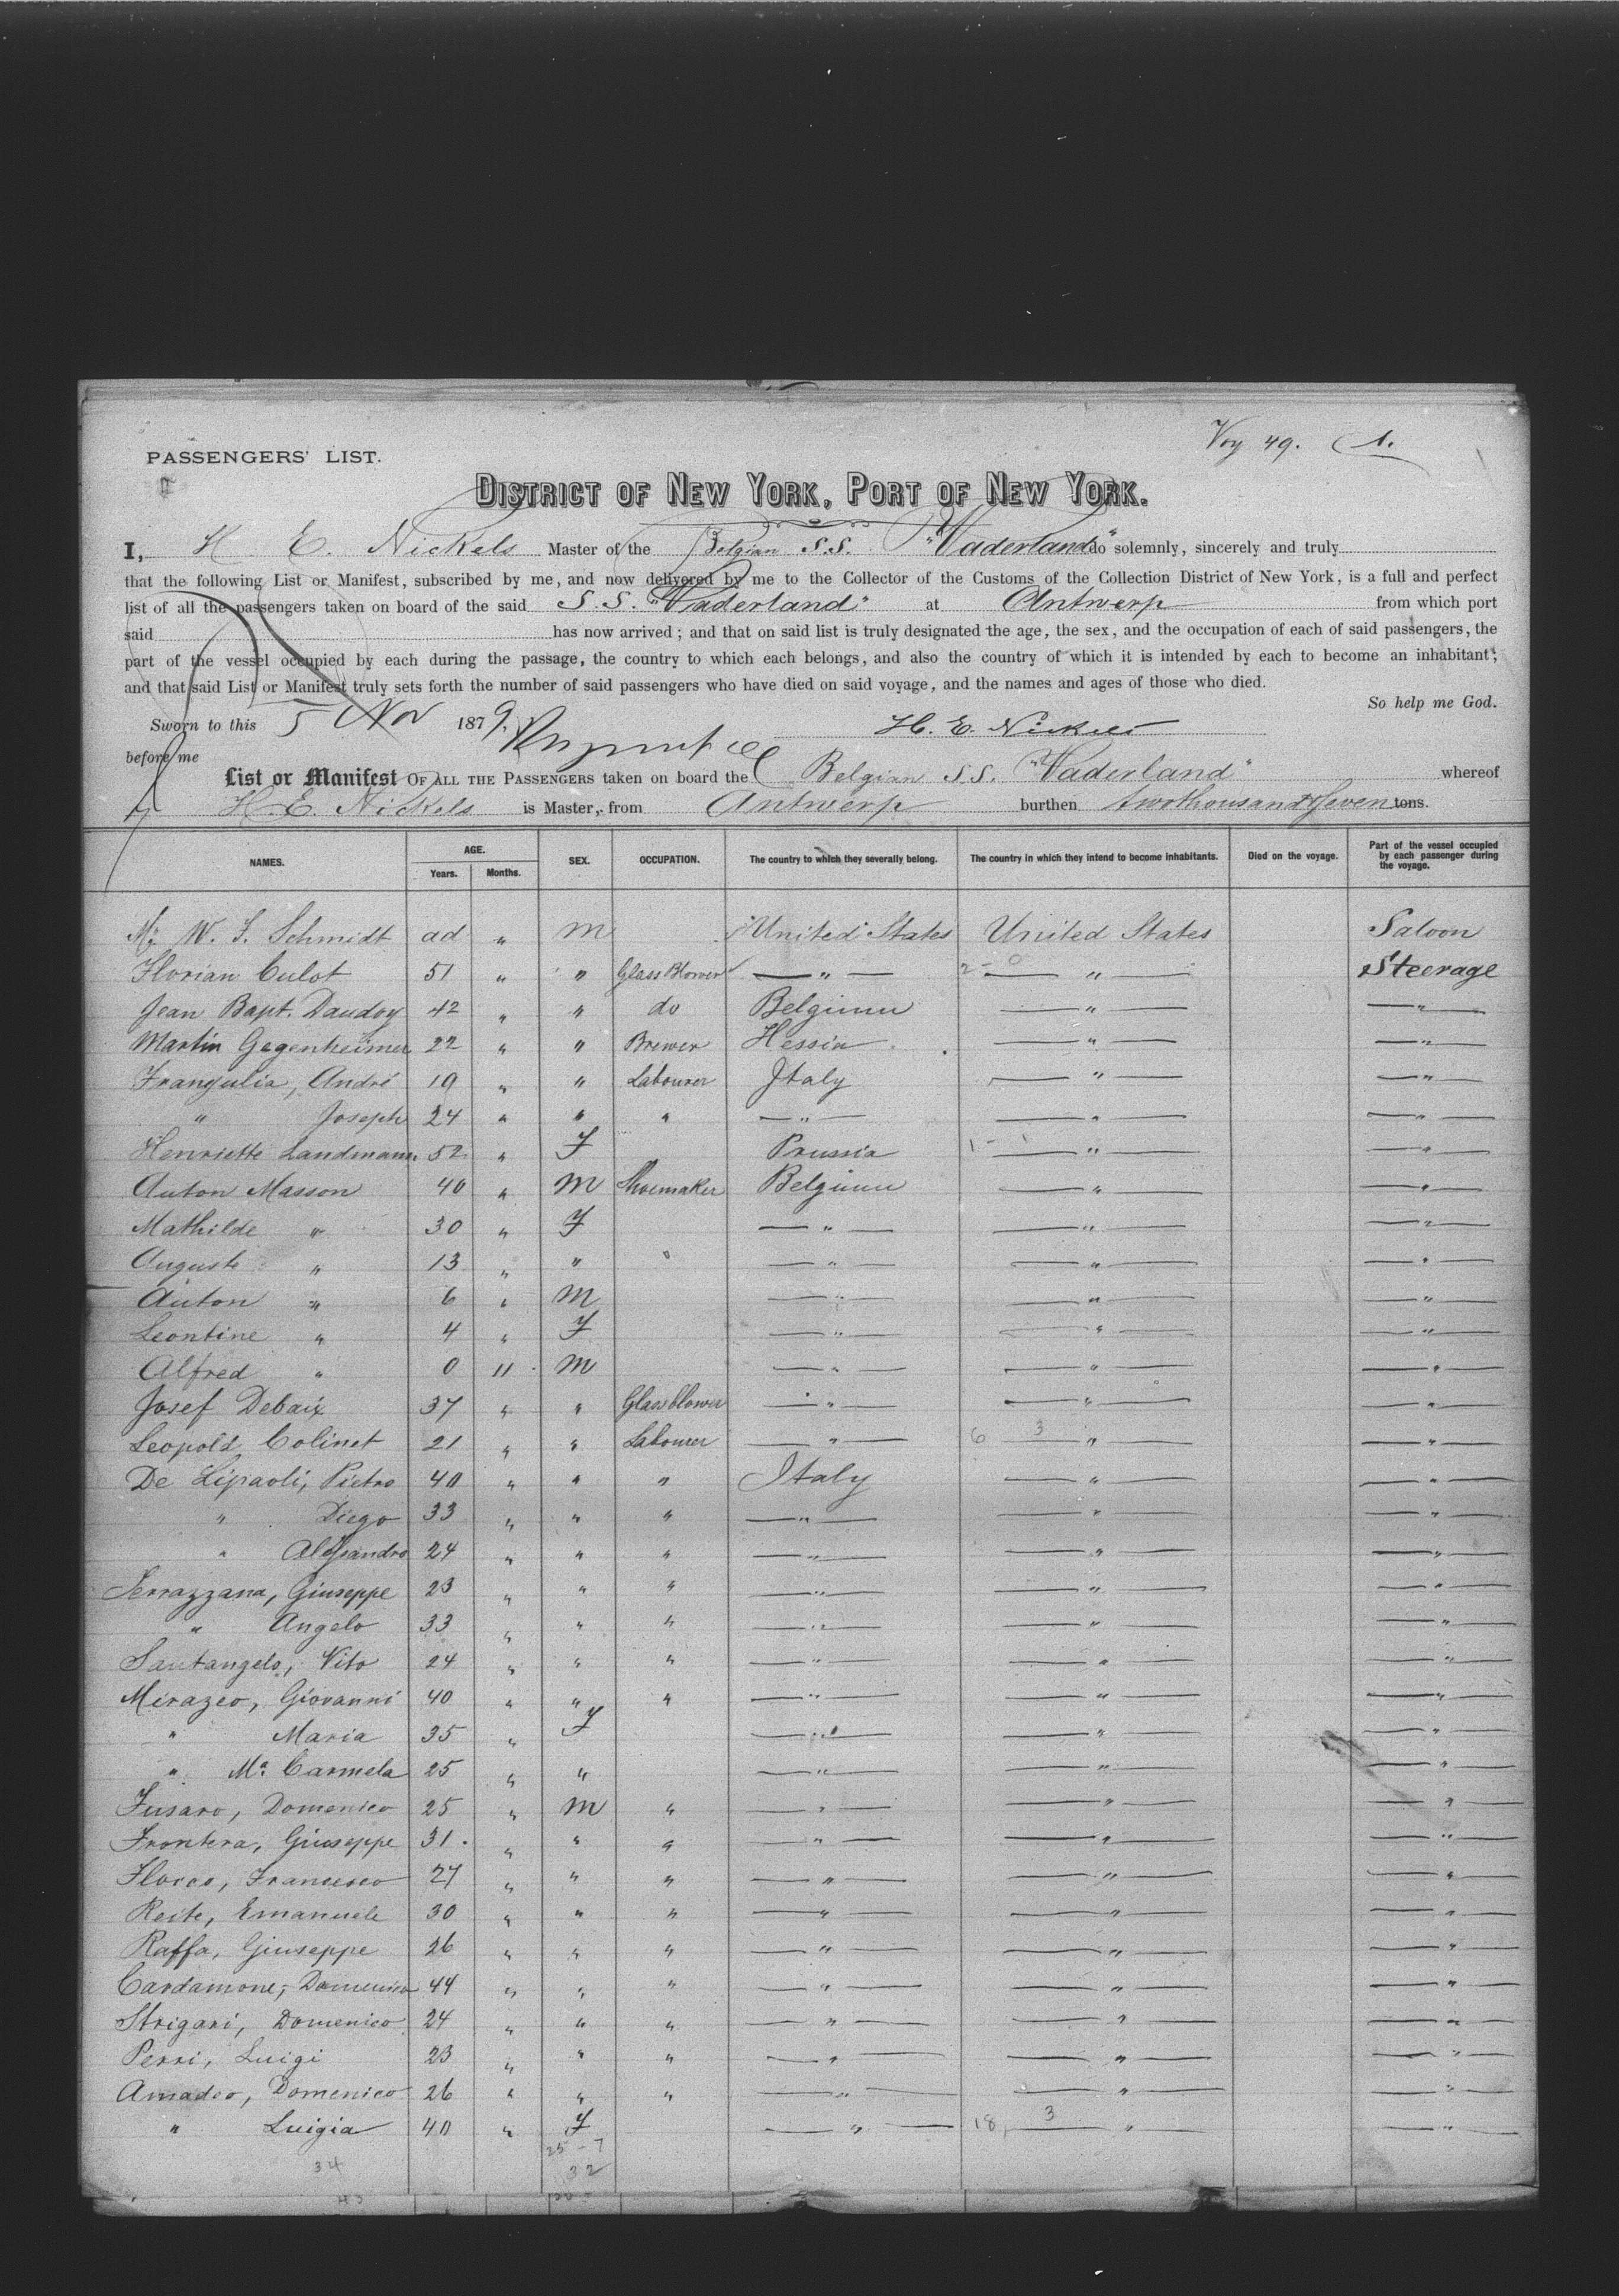 Voy 49. 1.
PASSENGERS' LIST.
DISTRICT OF NEW YORK, PORT OF NEW YORK.
I, H. E. Nickels Master of the Belgian S.S. "Vaderland" do solemnly, sincerely and truly
that the following List or Manifest, subscribed by me, and now delivered by me to the Collector of the Customs of the Collection District of New York, is a full and perfect
list of all the passengers taken on board of the said S.S. "Vaderland" at Antwerp from which port
said has now arrived; and that on said list is truly designated the age, the sex, and the occupation of each of said passengers, the
part of the vessel occupied by each during the passage, the country to which each belongs, and also the country of which it is intended by each to become an inhabitant;
and that said List or Manifest truly sets forth the number of said passengers who have died on said voyage, and the names and ages of those who died.
So help me God.
Sworn to this 5 Nov 1879. H. E. Nickels
before me
List or Manifest OF ALL THE PASSENGERS taken on board the Belgian S.S. "Vaderland" whereof
H. E. Nickels is Master, from Antwerp burthen two thousand & seven tons.
NAMES. AGE. Years. Months. SEX. OCCUPATION. The country to which they severally belong. The country in which they intend to become inhabitants. Died on the voyage. Part of the vessel occupied by each passenger during the voyage.
Mr W. J. Schmidt ad " M United States United States Saloon
Florian Culot 51 " " Glass Blower " 2 - 0 " Steerage
Jean Bapt. Daudoy 42 " " do Belgium " "
Martin Gegenheimer 22 " " Brewer Hessia " "
Frangulia, André 19 " " Labourer Italy " "
" Joseph 24 " " " " " "
Henriette Landmann 52 " F Prussia 1 - 1 " "
Anton Masson 40 " M Shoemaker Belgium " "
Mathilde " 30 " F " " "
Auguste " 13 " " " " "
Anton " 6 " M " " "
Leontine " 4 " F " " "
Alfred " 0 11 M " " "
Josef Debaix 37 " " Glassblower " " "
Leopold Colinet 21 " " Labourer " 6 3 " "
De Lipaoli, Pietro 40 " " " Italy " "
" Diego 33 " " " " " "
" Alessandro 24 " " " " " "
Serrazzana, Giuseppe 23 " " " " " "
" Angelo 33 " " " " " "
Santangelo, Vito 24 " " " " " "
Mirazeo, Giovanni 40 " " " " " "
" Maria 35 " F " " "
" Ma. Carmela 25 " " " " "
Fusaro, Domenico 25 " M " " " "
Frontera, Giuseppe 31. " " " " " "
Flocco, Francesco 27 " " " " " "
Reite, Emanuele 30 " " " " " "
Raffa, Giuseppe 26 " " " " " "
Cardamone, Domenico 44 " " " " " "
Strigari, Domenico 24 " " " " " "
Perri, Luigi 23 " " " " " "
Amadeo, Domenico 26 " " " " " "
" Luigia 40 " F " 18, 3 " "
25 - 7
34 32